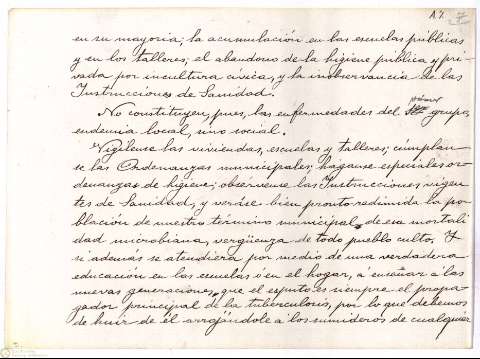 A7. 27
en su mayoria; la acumulación en las escuelas públicas
y en los talleres; el abandono de la higiene pública y pri-
vada por incultura cívica, y la inobservancia de las
Instrucciones de Sanidad.
No constituyen, pues, las enfermedades del primer grupo,
endemia local, sino social.
Vigílense las viviendas, escuelas y talleres; cúmplan-
se las Ordenanzas municipales; háganse especiales or-
denanzas de higiene; obsérvense las Instrucciones vigen-
tes de Sanidad, y veráse bien pronto redimida la po-
blación de nuestro término municipal, de esa mortali-
dad microbiana, vergüenza de todo pueblo culto. Y
si además se atendiera por medio de una verdadera
educación en las escuelas ó en el hogar, á enseñar á las
nuevas generaciones, que el esputo es siempre el propa-
gador principal de la tuberculosis, por lo que debemos
de huir de él arrojándole á los sumideros de cualquier